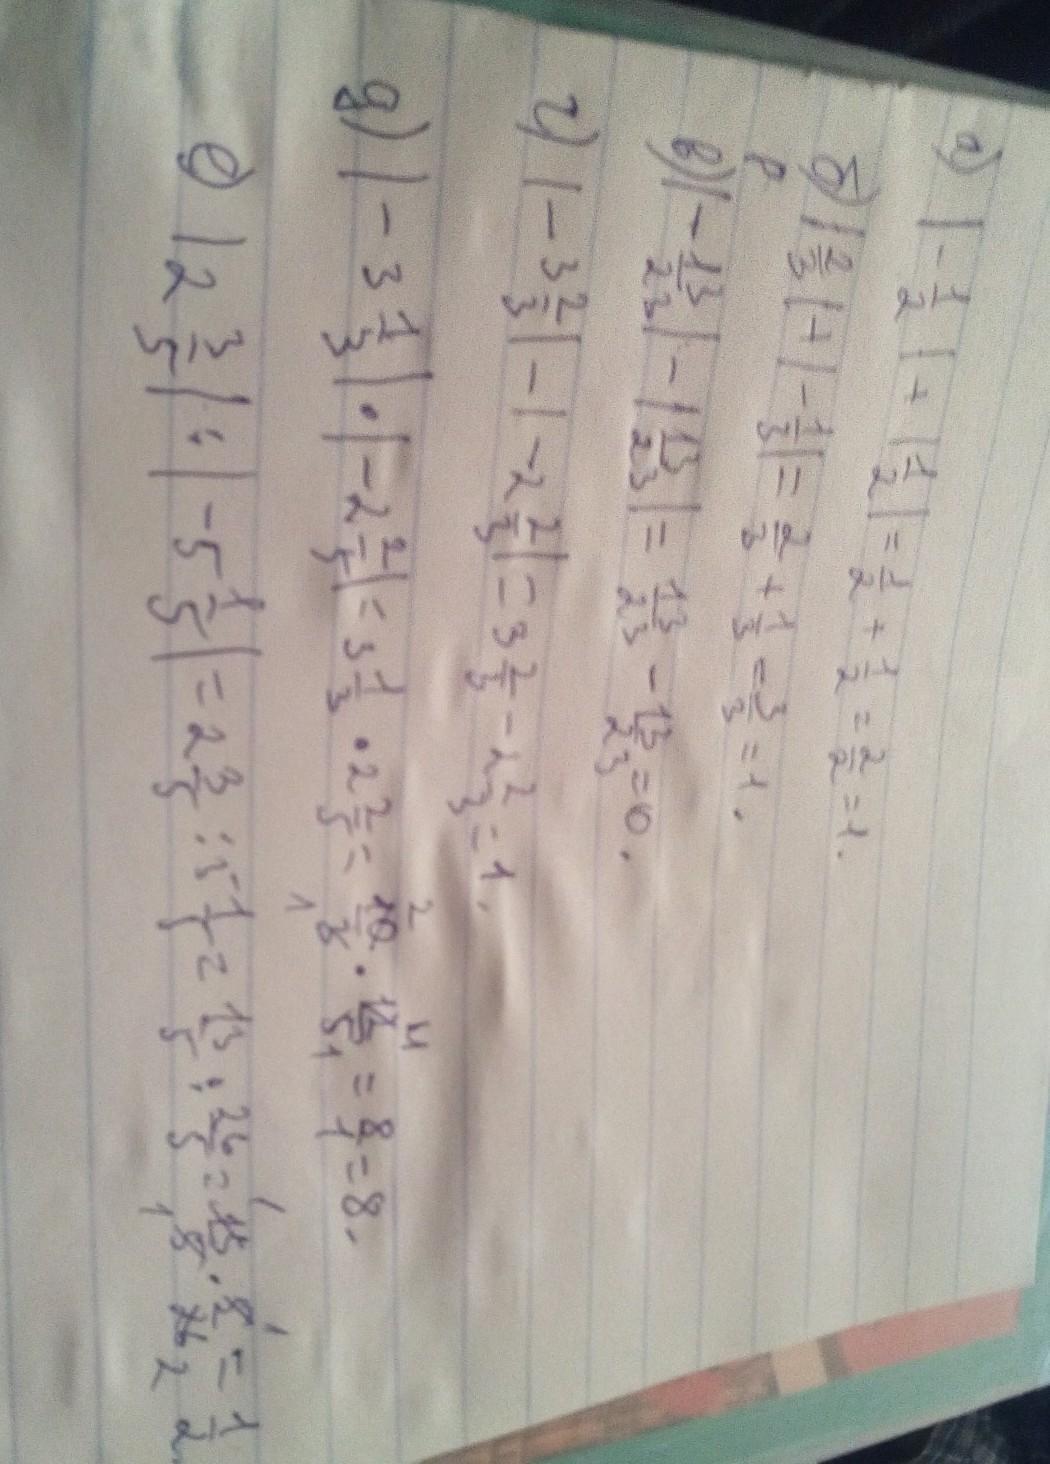 а) |-1/2| + |1/2| = 1/2 + 1/2 = 2/2 = 1.
б) |2/3| + |-1/3| = 2/3 + 1/3 = 3/3 = 1.
в) |-13/23| - |13/23| = 13/23 - 13/23 = 0.
г) |-3 2/3| - |-2 2/3| = 3 2/3 - 2 2/3 = 1.
д) |-3 1/3| · |-2 2/5| = 3 1/3 · 2 2/5 = 10/3 · 12/5 = 8/1 = 8.
е) |2 3/5| : |-5 1/5| = 2 3/5 : 5 1/5 = 13/5 : 26/5 = 13/5 · 5/26 = 1/2